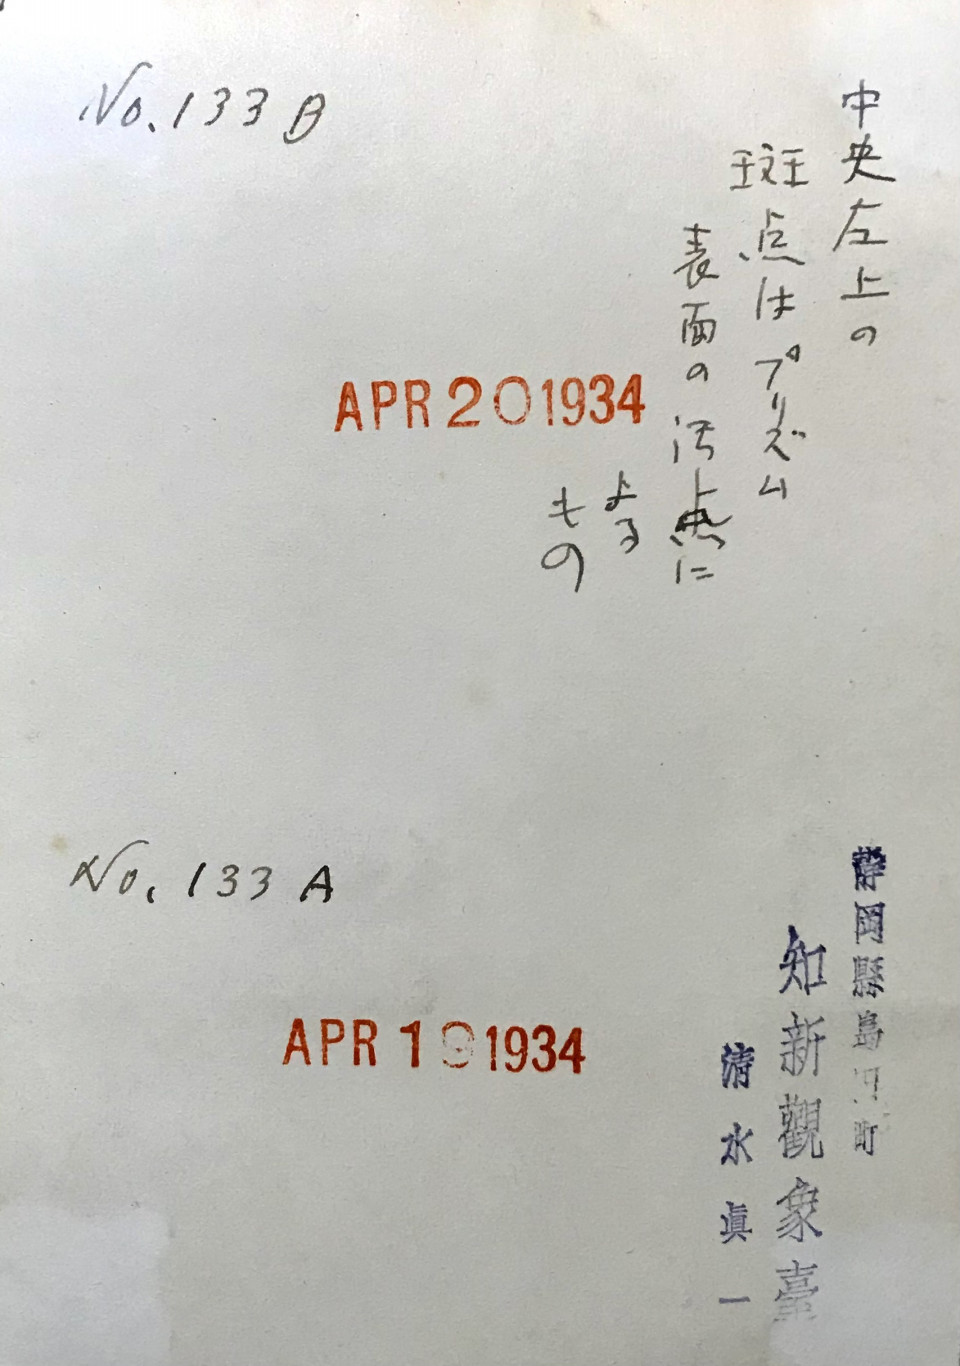 No. 133 B
中央左上の
斑点はプリズム
表面の汚点に
よる
もの
APR 20 1934
No. 133 A
APR 19 1934
静岡縣島田町
知新觀象臺
清水眞一